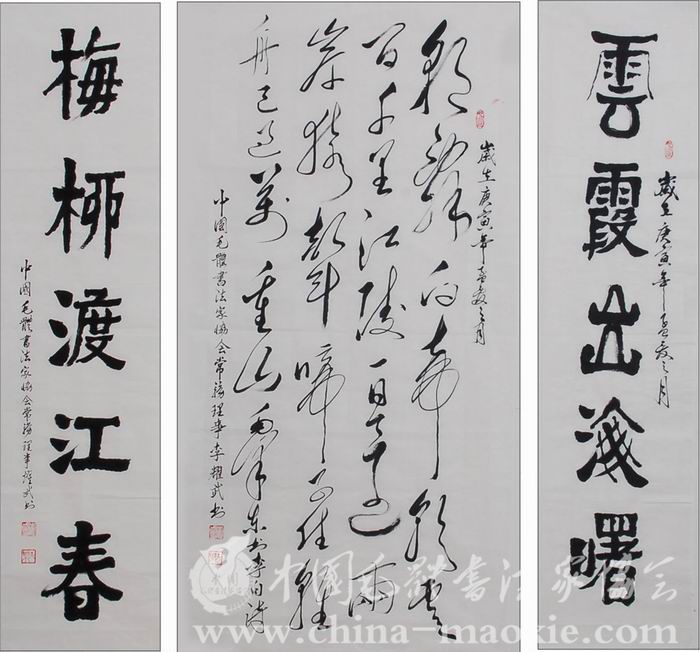 雲霞出海曙
歲在庚寅年孟夏之月
歲在庚寅年孟夏之月
朝辞白帝彩雲
间千里江陵一日還兩
岸猿声啼不住輕
舟已過萬重山
中國毛體書法家协会常務理事李耀武书
梅柳渡江春
中國毛體書法家协会常務理事耀武书
中國毛體書法家协会
www.china-maoxie.com